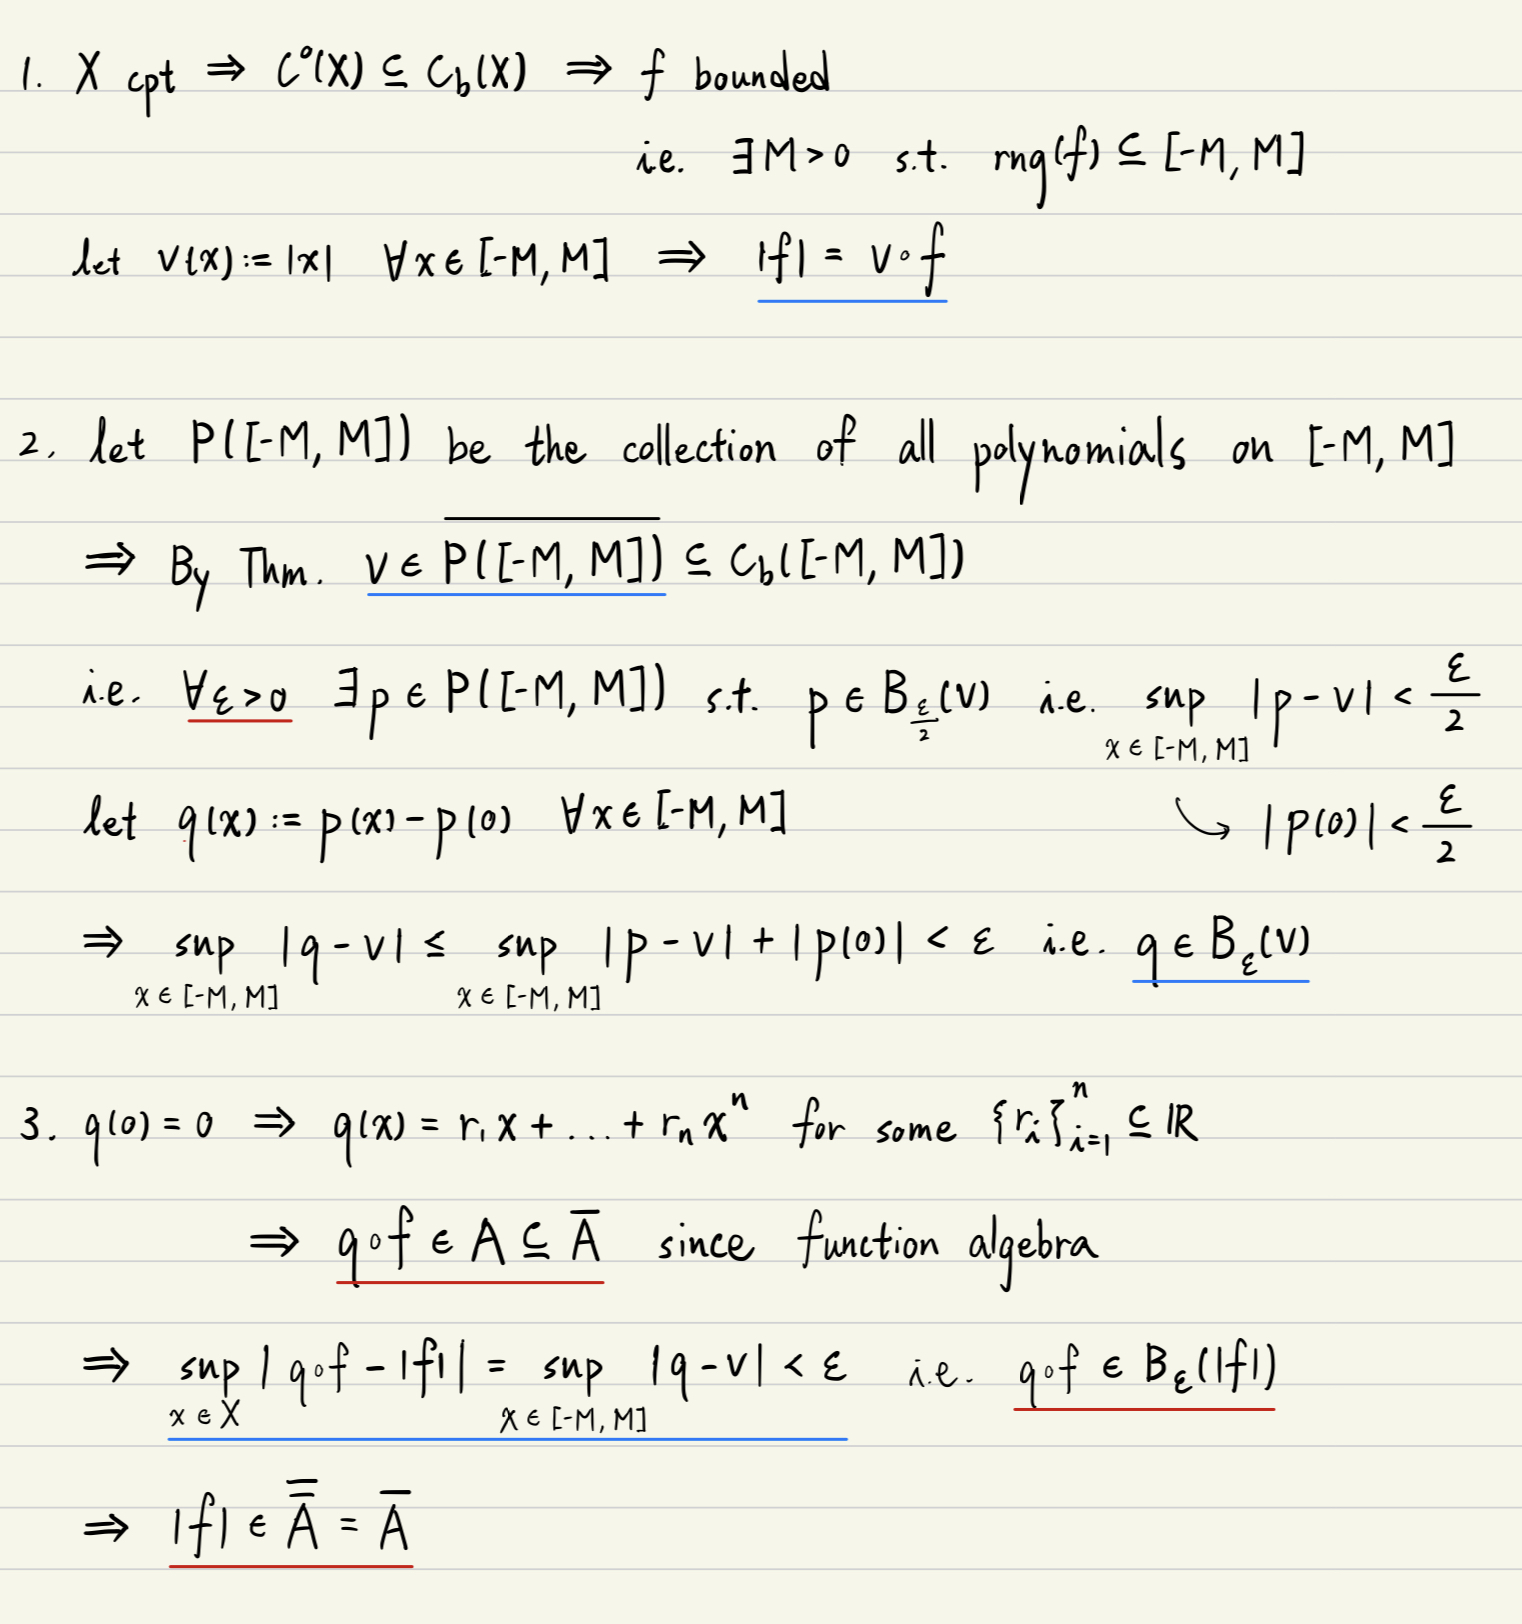 1. X cpt ⇒ C⁰(X) ⊆ C_b(X) ⇒ f bounded
i.e. ∃ M > 0 s.t. rng(f) ⊆ [-M, M]
let v(x) := |x| ∀x ∈ [-M, M] ⇒ |f| = v∘f
2. let P([-M, M]) be the collection of all polynomials on [-M, M]
⇒ By Thm. v ∈ \overline{P([-M, M])} ⊆ C_b([-M, M])
i.e. ∀ε > 0 ∃ p ∈ P([-M, M]) s.t. p ∈ B_{ε/2}(v) i.e. sup_{x ∈ [-M, M]} |p - v| < ε/2
let q(x) := p(x) - p(0) ∀x ∈ [-M, M] ↪ |p(0)| < ε/2
⇒ sup_{x ∈ [-M, M]} |q - v| ≤ sup_{x ∈ [-M, M]} |p - v| + |p(0)| < ε i.e. q ∈ B_ε(v)
3. q(0) = 0 ⇒ q(x) = r₁x + ... + r_n xⁿ for some {r_i}_{i=1}^n ⊆ ℝ
⇒ q∘f ∈ A ⊆ \overline{A} since function algebra
⇒ sup_{x ∈ X} |q∘f - |f|| = sup_{x ∈ [-M, M]} |q - v| < ε i.e. q∘f ∈ B_ε(|f|)
⇒ |f| ∈ \overline{\overline{A}} = \overline{A}